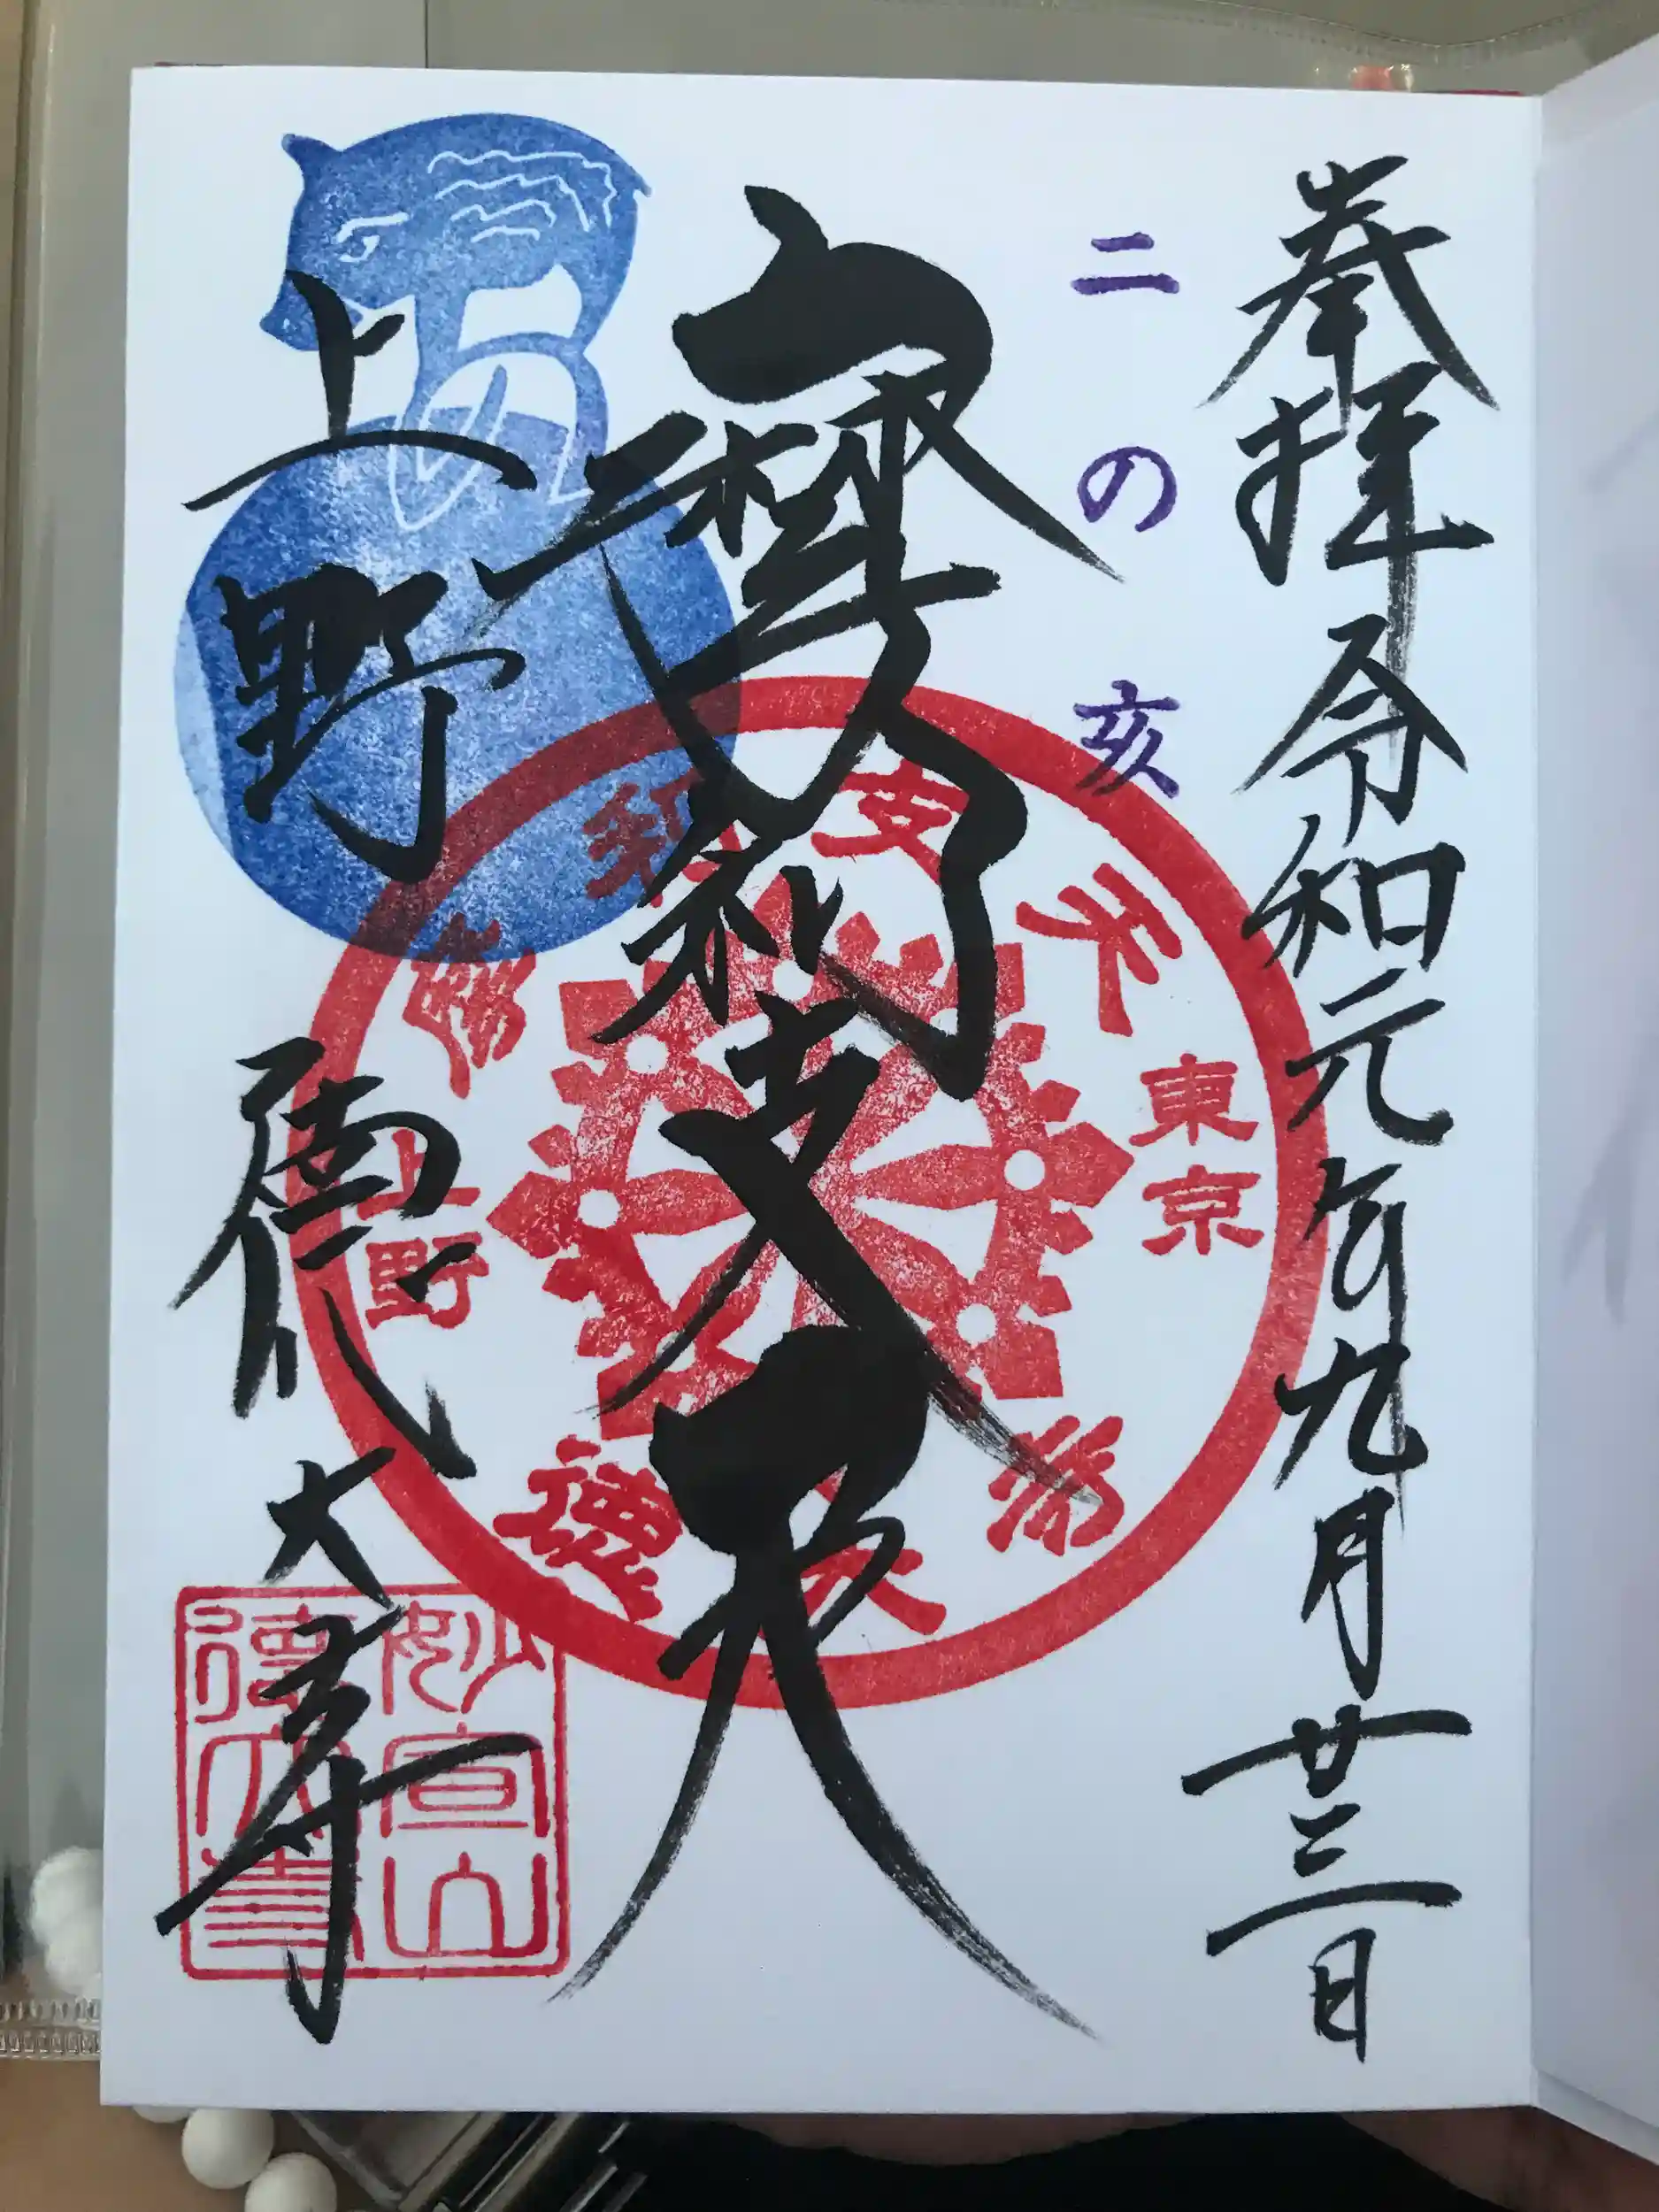 奉拝 令和元年九月廿三日
二の亥
摩利支天
上野 德大寺
摩利支天
東京
上野
德大寺
妙宣山
德大寺